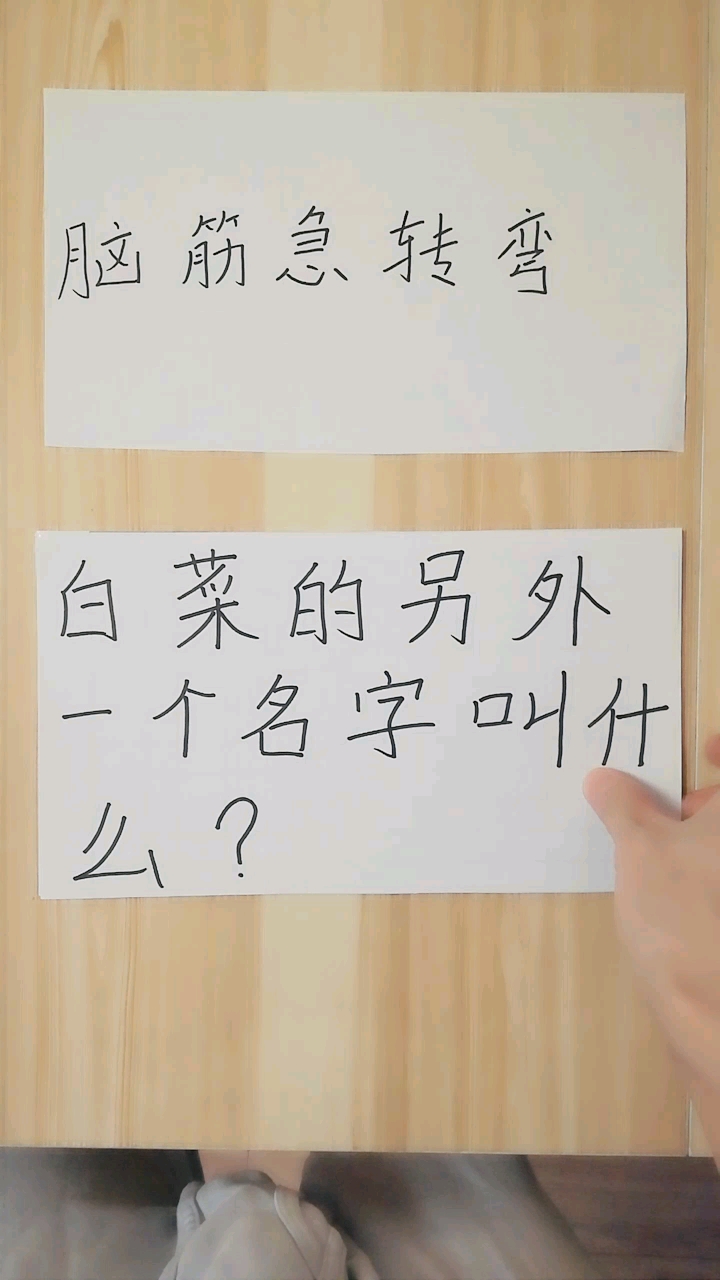 脑筋急转弯
白菜的另外
一个名字叫什
么?